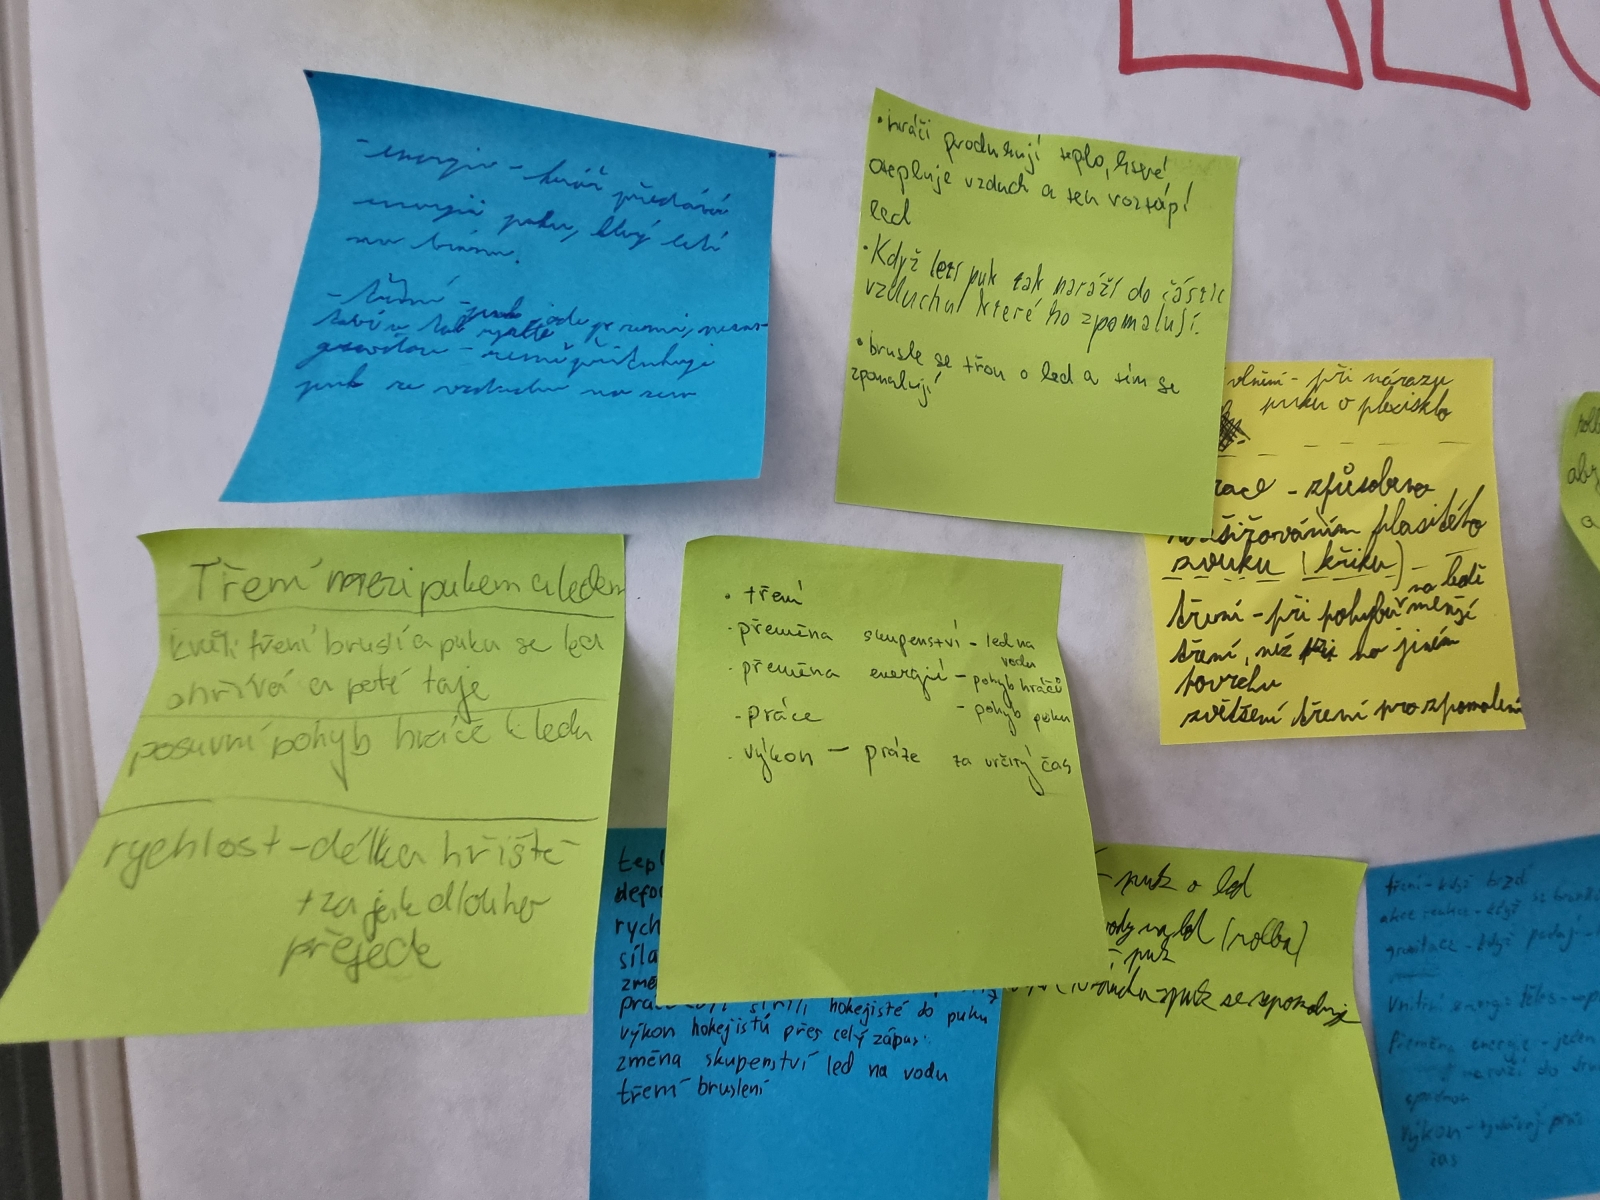 - energie - hráč předává
energii puku, který letí
na bránu.
- tření - puk jede po zemi, nezas-
gravitace - země přitahuje
puk ze vzduchu na zem
• hráči produkují teplo, které
otepluje vzduch a ten roztápí
led
• Když letí puk tak naráží do částic
vzduchu které ho zpomalují.
• brusle se třou o led a tím se
zpomalují
vlnění - při nárazu
puku o plexisklo
race - způsobena
rozšiřováním hlasitého
zvuku (křiku)
tření - při pohybu na ledě menší
tření, než při na jiném
povrchu
zvětšení tření pro zpomalení
Tření mezi pukem a ledem
kvůli tření bruslí a puku se led
ohřívá a poté taje
posuvní pohyb hráče k ledu
rychlost - délka hřiště
+ za jak dlouho
přejede
• tření
- přeměna skupenství - led na
vodu
- přeměna energií - pohyb hráčů
- pohyb puku
- práce
- výkon - práce za určitý čas
tepl
defo
rych
síla
změ
hokejisté do puku
výkon hokejistů přes celý zápas
změna skupenství led na vodu
tření bruslení
- puk o led
ody na led (rolba)
puk
puk se zpomaluje
tření - když brzdí
akce reakce - když
gravitace - když padají
Vnitřní energie těles
Přeměna energie - jeden
narazí do
spadnou
Výkon - vykonaný prá
čas